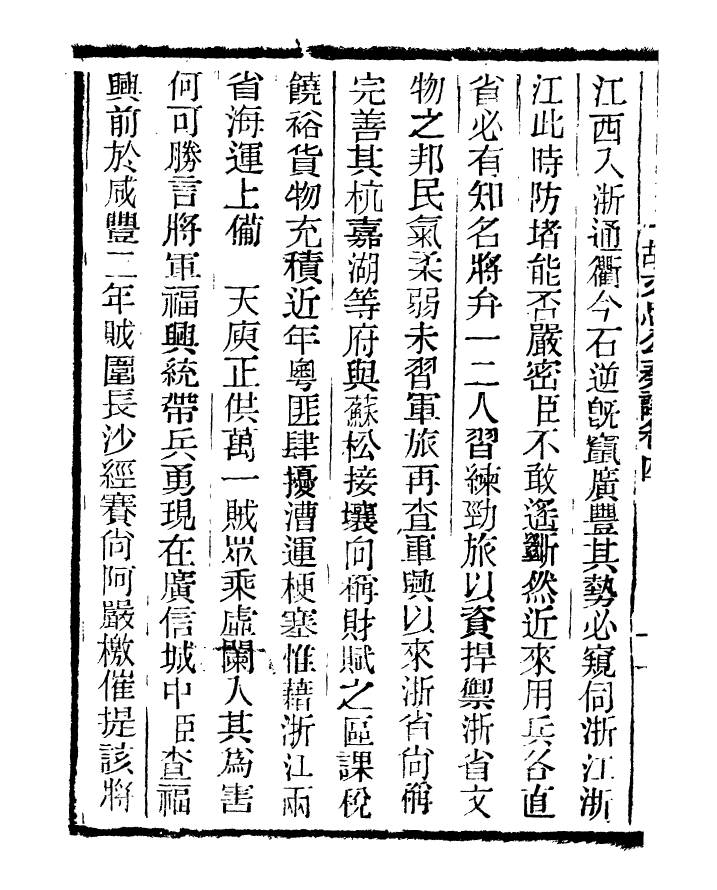 胡文忠公奏議卷四
江西入浙通衢今石逆旣竄廣豐其勢必窺伺浙江浙
江此時防堵能否嚴密臣不敢遙斷然近來用兵各直
省必有知名將弁一二人習練勁旅以資捍禦浙省文
物之邦民氣柔弱未習軍旅再查軍興以來浙省尙稱
完善其杭嘉湖等府與蘇松接壤向稱財賦之區課稅
饒裕貨物充積近年粵匪肆擾漕運梗塞惟藉浙江兩
省海運上備　天庾正供萬一賊眾乘虛闌入其爲害
何可勝言將軍福興統帶兵勇現在廣信城中臣查福
興前於咸豐二年賊圍長沙經賽尙阿嚴檄催提該將